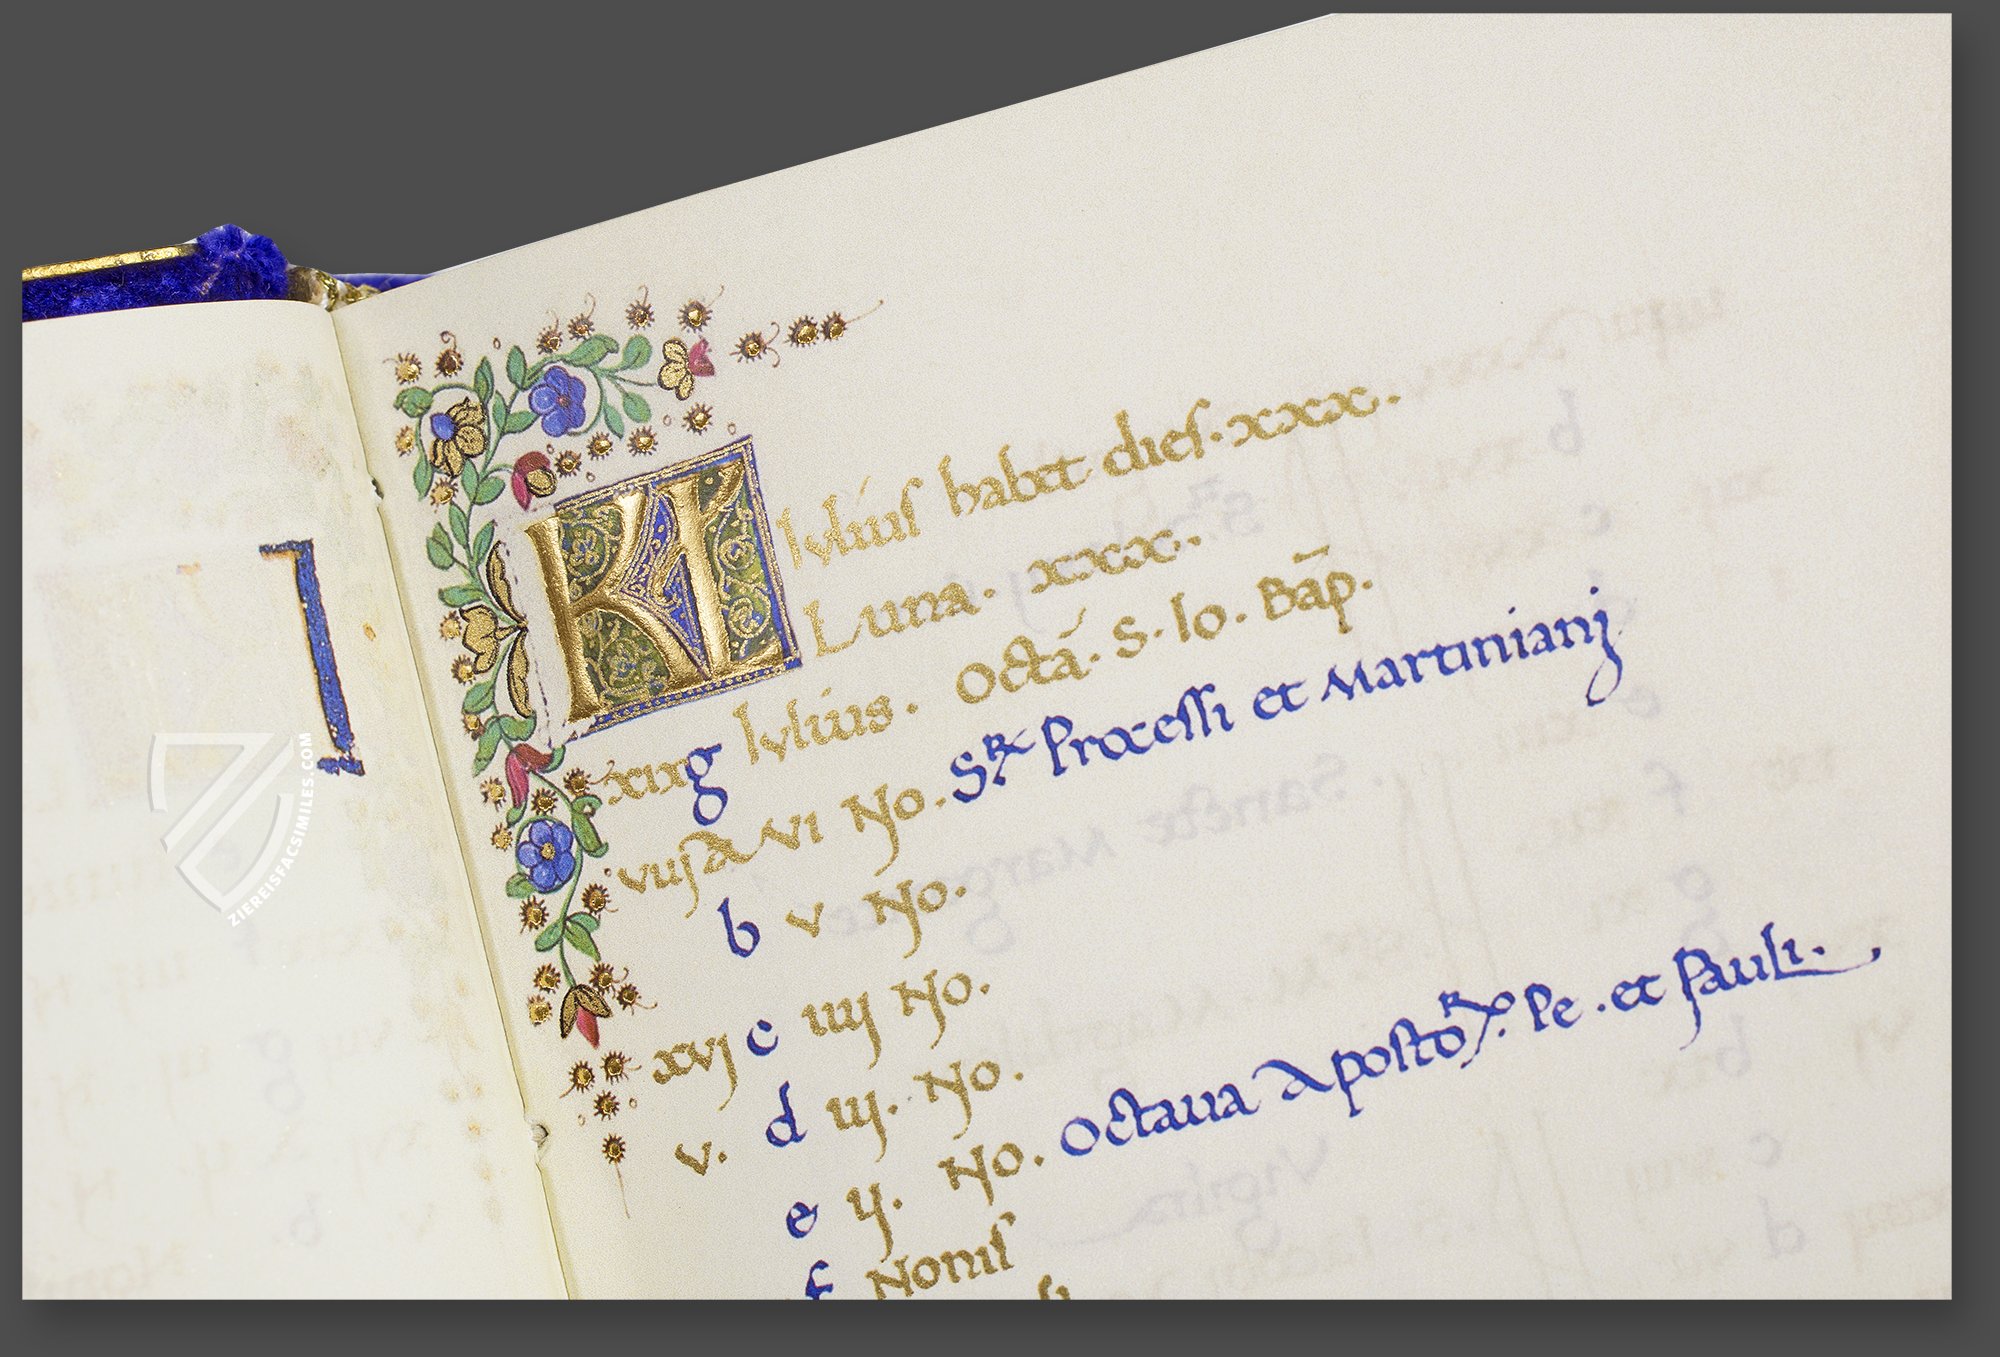 KL Iulius habet dies. xxx.
Luna. xxx.
xix g Iulius. Octa. S. Io. Bap.
viij A vi No. Sʀ Processi et Martiniani
b v No.
xvj c iiij No.
v. d iij. No.
e ij. No. Octaua Apostoʀ. Pe. et Pauli.
f Nonis
ZIEREISFACSIMILES.COM